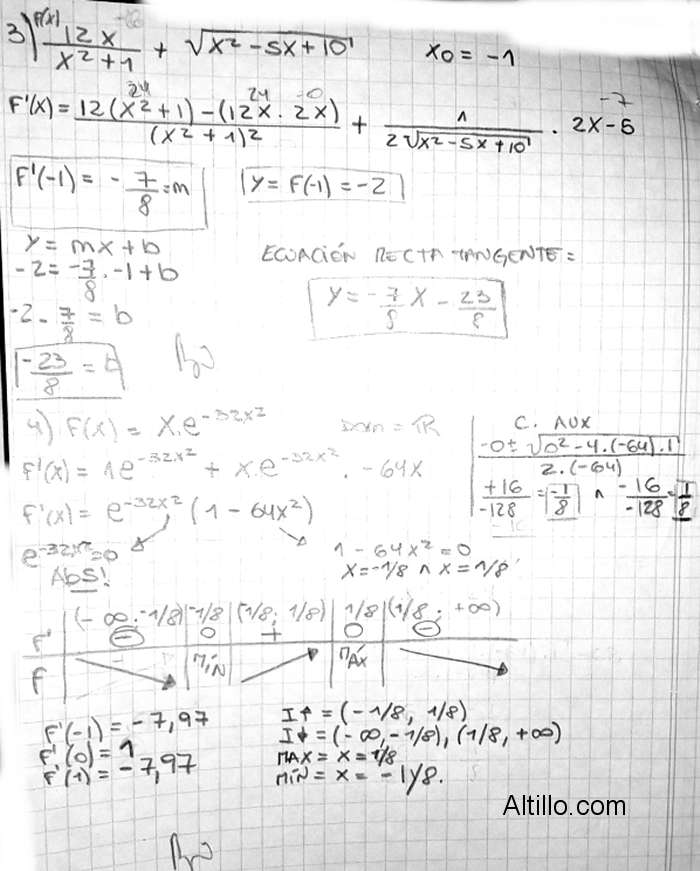 3) F(x) 12x / x² + 1 + √(x² - 5x + 10)    x₀ = -1
F'(x) = 12(x² + 1) - (12x . 2x) / (x² + 1)² + 1 / 2√(x² - 5x + 10) . 2x - 5
24 24 -7
F'(-1) = -7/8 = m    y = F(-1) = -2
y = mx + b
-2 = -7/8 . -1 + b
-2 - 7/8 = b
-23/8 = b
ECUACIÓN RECTA TANGENTE =
y = -7/8 x - 23/8
4) F(x) = x.e^-32x²    Dom = ℝ
F'(x) = 1e^-32x² + x.e^-32x² . -64x
F'(x) = e^-32x² (1 - 64x²)
e^-32x² = 0
ABS!
1 - 64x² = 0
x = -1/8 ∧ x = 1/8
C. AUX
-0 ± √(0² - 4.(-64).1) / 2.(-64)
+16/-128 = -1/8 ∧ -16/-128 = 1/8
(-∞; -1/8) -1/8 (1/8; 1/8) 1/8 (1/8; +∞)
F' - 0 + 0 -
F MÍN MÁX
F'(-1) = -7,97
F'(0) = 1
F'(1) = -7,97
I↑ = (-1/8, 1/8)
I↓ = (-∞, -1/8), (1/8, +∞)
MAX = x = 1/8
MÍN = x = -1/8.
Altillo.com